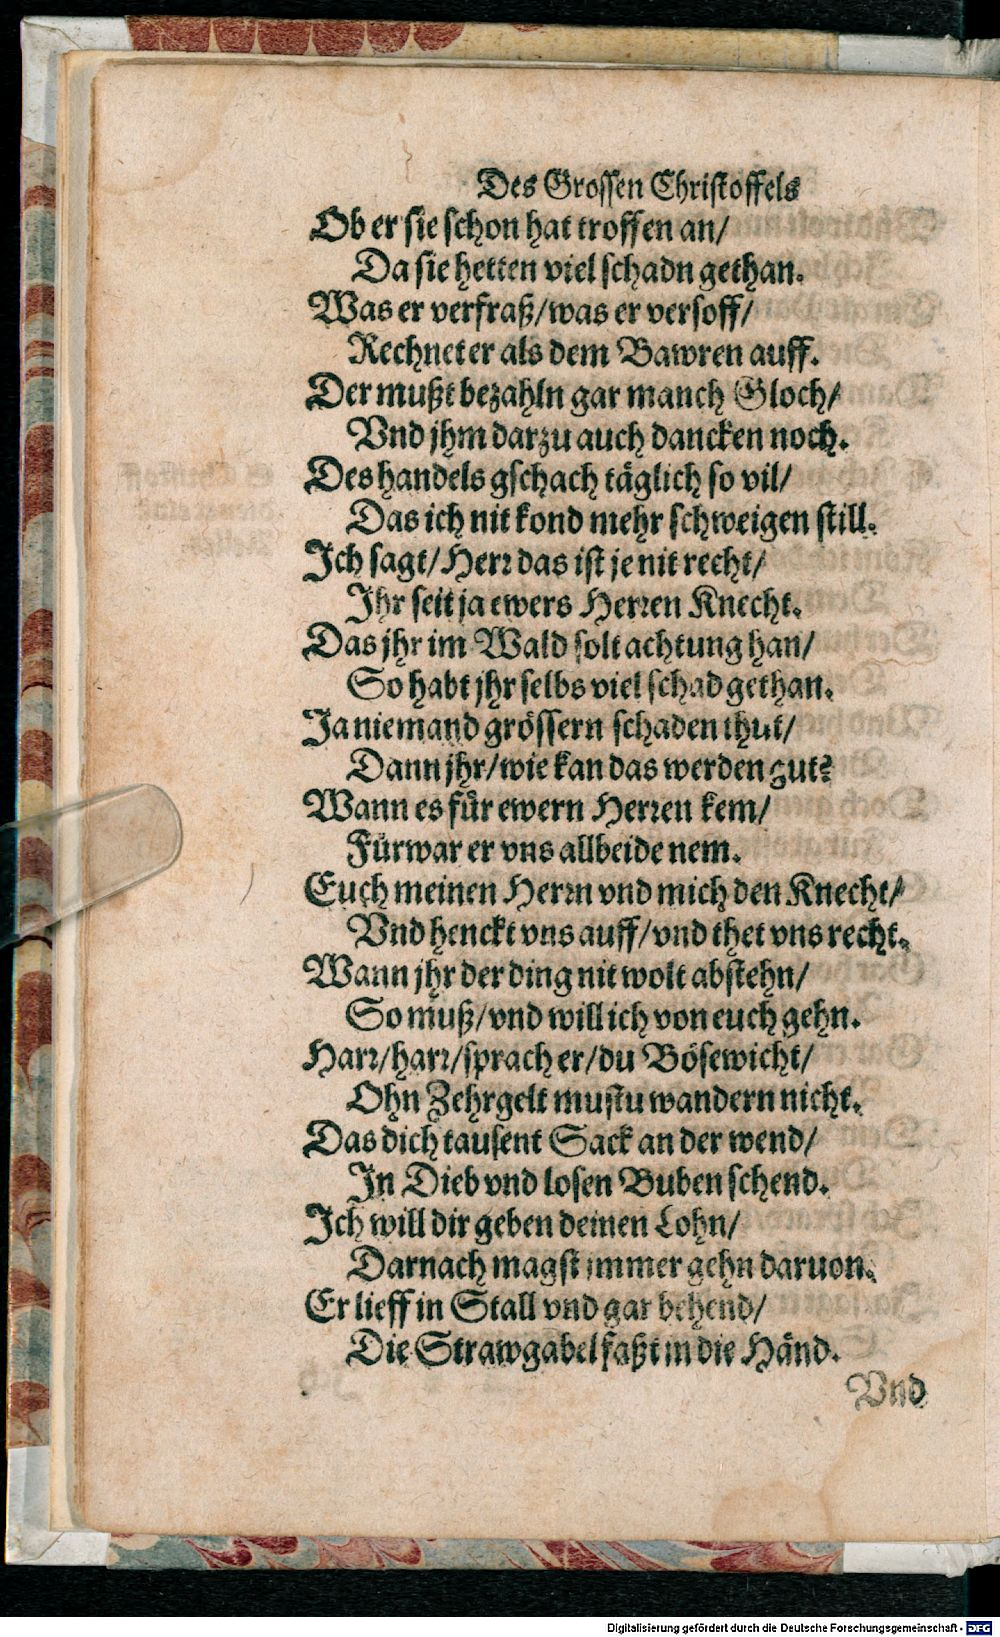 Des Grossen Christoffels
Ob er sie schon hat troffen an/
Da sie hetten viel schadn gethan.
Was er verfraß/was er versoff/
Rechnet er als dem Bawren auff.
Der mußt bezahln gar manch Gloch/
Vnd jhm darzu auch dancken noch.
Des handels gschach täglich so vil/
Das ich nit kond mehr schweigen still.
Ich sagt/Herr das ist je nit recht/
Ihr seit ja ewers Herren Knecht.
Das jhr im Wald solt achtung han/
So habt jhr selbs viel schad gethan.
Ja niemand grössern schaden thut/
Dann jhr/wie kan das werden gut?
Wann es für ewern Herren kem/
Fürwar er vns allbeide nem.
Euch meinen Herrn vnd mich den Knecht/
Vnd henckt vns auff/vnd thet vns recht.
Wann jhr der ding nit wolt abstehn/
So muß/vnd will ich von euch gehn.
Harr/harr/sprach er/du Bösewicht/
Ohn Zehrgelt mustu wandern nicht.
Das dich tausent Sack an der wend/
In Dieb vnd losen Buben schend.
Ich will dir geben deinen Lohn/
Darnach magst immer gehn daruon.
Er lieff in Stall vnd gar behend/
Die Strawgabel faßt in die Händ.
Vnd
Digitalisierung gefördert durch die Deutsche Forschungsgemeinschaft - DFG